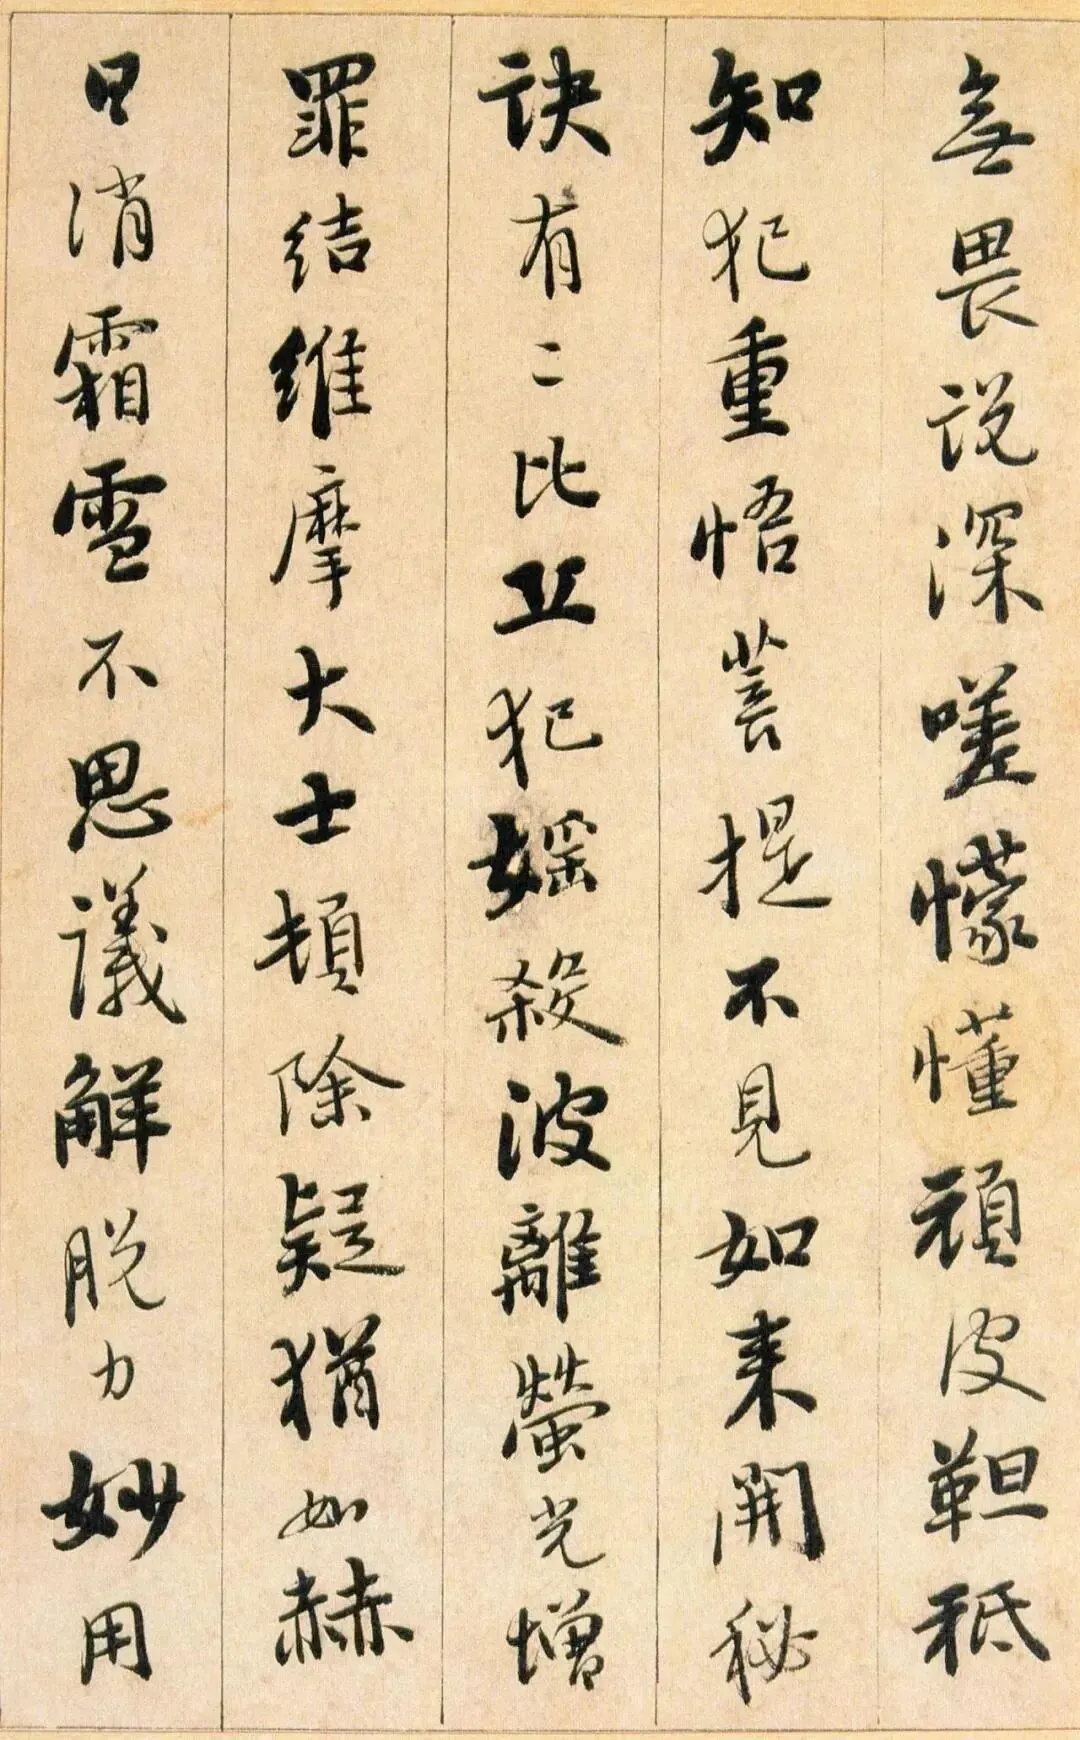 無畏說深嗟懞懂頑皮靼秪
知犯重悟菩提不見如来開秘
訣有二比丘犯婬殺波離螢光增
罪結維摩大士頓除疑猶如赫
日消霜雪不思議解脫力妙用